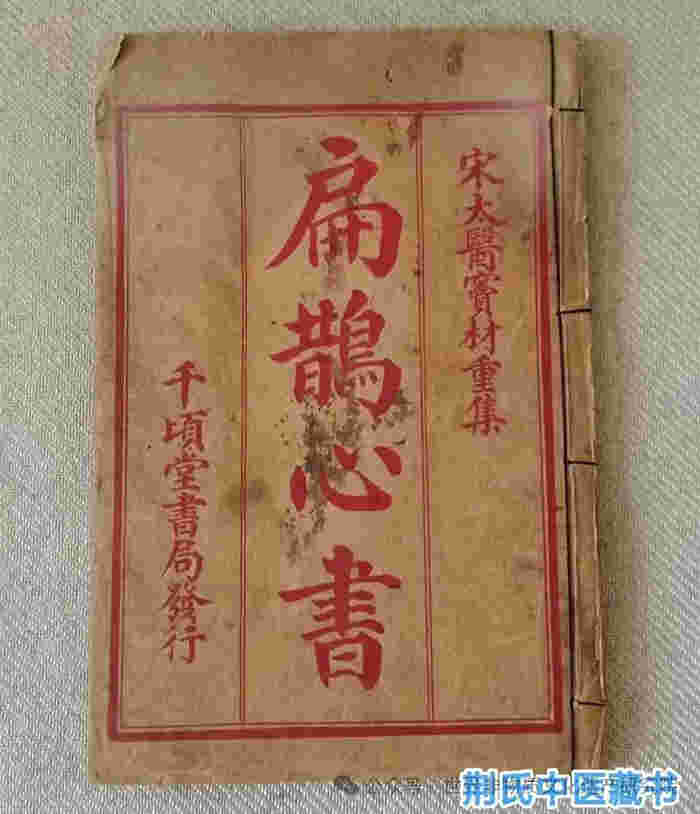 宋太醫竇材重集
扁鵲心書
千頃堂書局發行
公众号
荆氏中医藏书